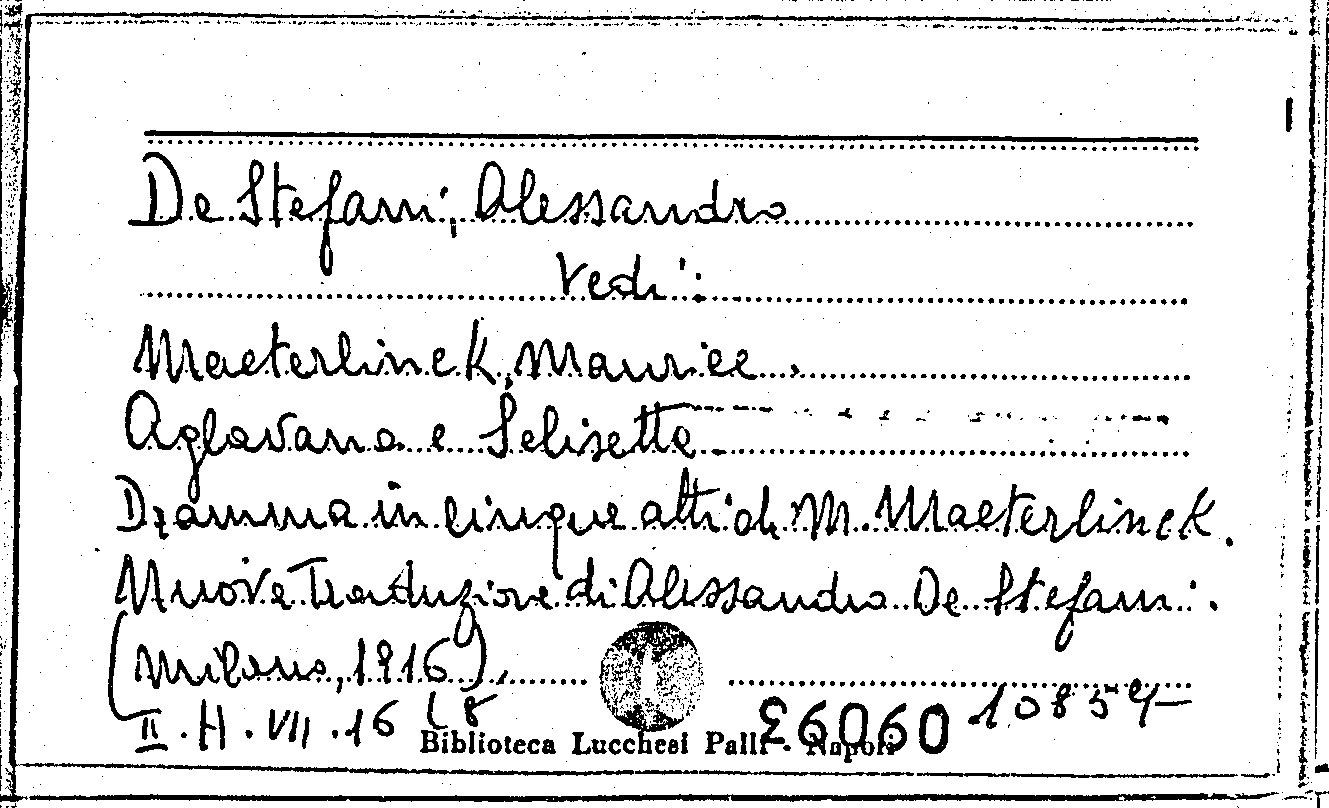 De Stefani, Alessandro
Vedi:
Maeterlinck, Maurice.
Aglavana e Selisette
Dramma in cinque atti di M. Maeterlinck.
Nuova Traduzione di Alessandro De Stefani.
(Milano, 1916).
II. H. VII. 16 (8 £6060 10854
Biblioteca Lucchesi Palli - Napoli